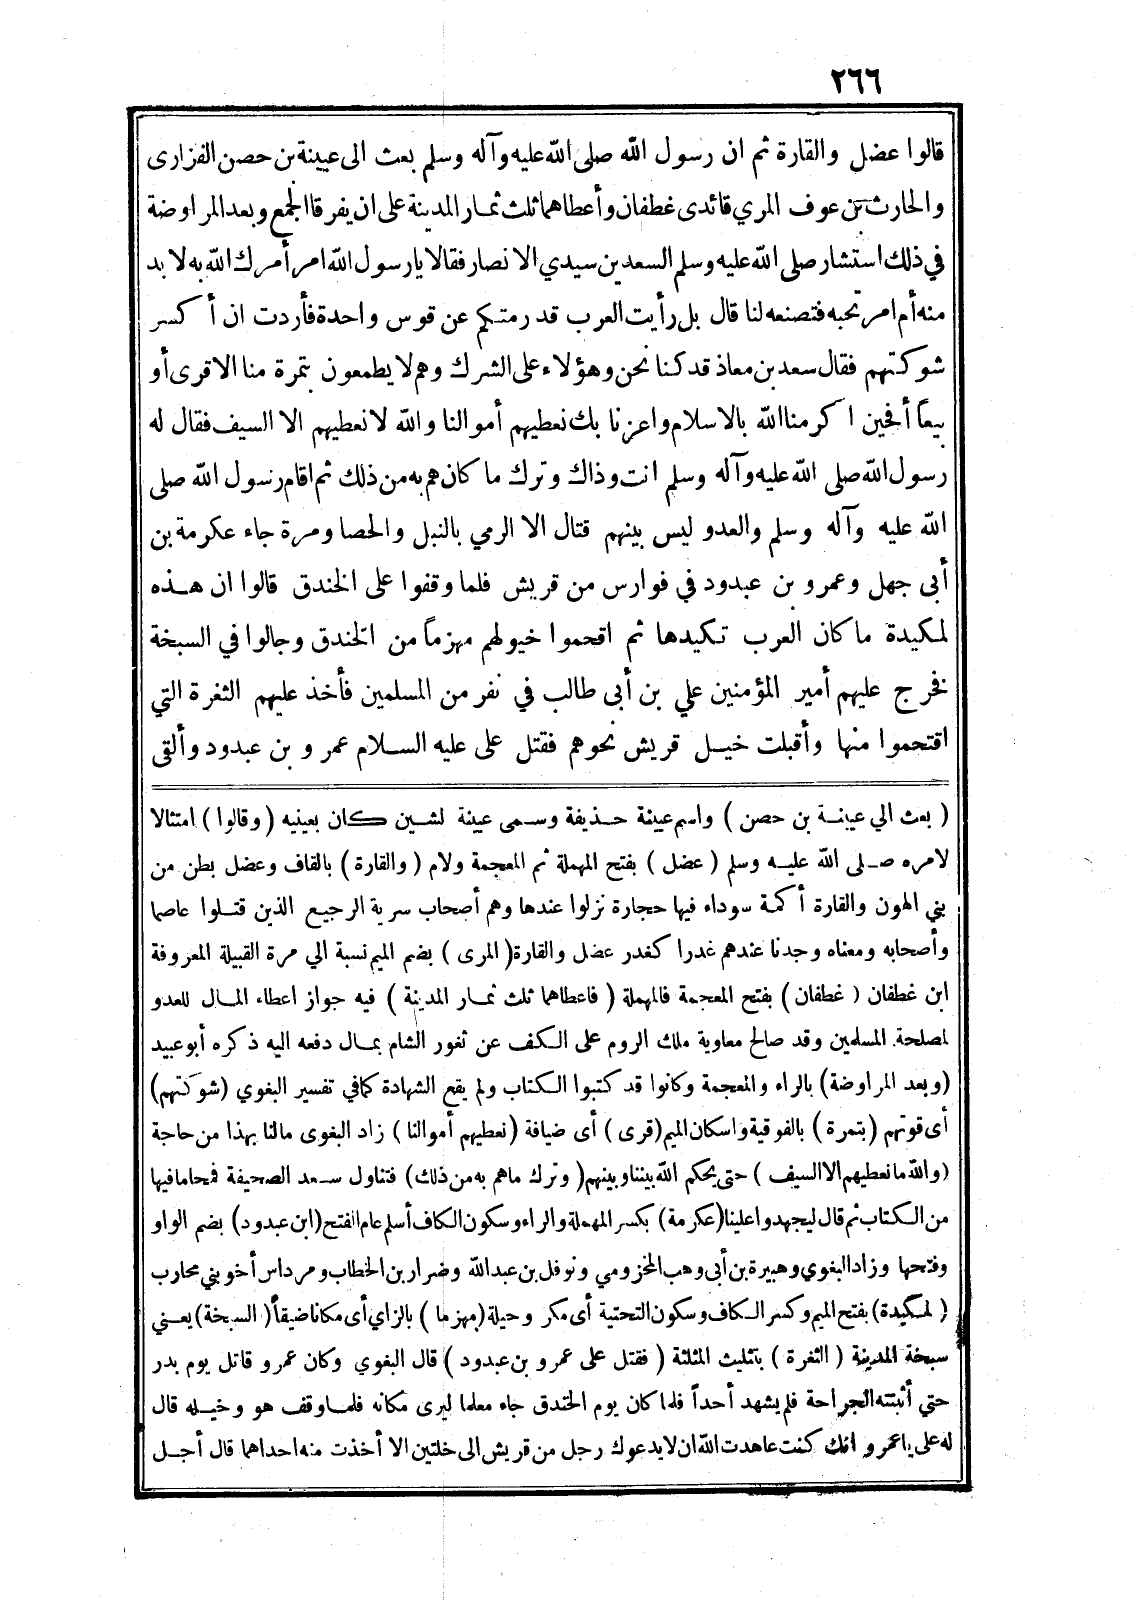 ٢٦٦
قالوا عضل والقارة ثم ان رسول الله صلى الله عليه وآله وسلم بعث الى عيينة بن حصن الفزارى
والحارث بن عوف المري قائدى غطفان وأعطاهما ثلث ثمار المدينة على ان يفرقا الجمع وبعد المراوضة
في ذلك استشار صلى الله عليه وسلم السعد بن سيدي الانصار فقالا يا رسول الله امر أمرك الله به لا بد
منه أم امر تحبه فتصنعه لنا قال بل رأيت العرب قد رمتكم عن قوس واحدة فأردت ان أكسر
شوكتهم فقال سعد بن معاذ قد كنا نحن وهؤلاء على الشرك وهم لا يطمعون بتمرة منا الا قرى أو
بيعاً أفحين اكرمنا الله بالاسلام واعزنا بك نعطيهم أموالنا والله لا نعطيهم الا السيف فقال له
رسول الله صلى الله عليه وآله وسلم انت وذاك وترك ما كان هم به من ذلك ثم اقام رسول الله صلى
الله عليه وآله وسلم والعدو ليس بينهم قتال الا الرمي بالنبل والحصا ومرة جاء عكرمة بن
أبى جهل وعمرو بن عبدود في فوارس من قريش فلما وقفوا على الخندق قالوا ان هذه
لمكيدة ما كان العرب تكيدها ثم اقحموا خيولهم مهزماً من الخندق وجالوا في السبخة
فخرج عليهم أمير المؤمنين علي بن أبى طالب في نفر من المسلمين فأخذ عليهم الثغرة التي
اقتحموا منها وأقبلت خيل قريش نحوهم فقتل على عليه السلام عمرو بن عبدود وألقى
( بعث الي عيينة بن حصن ) واسم عيينة حذيفة وسمى عيينة لشين كان بعينيه ( وقالوا ) امتثالا
لامره صلى الله عليه وسلم ( عضل ) بفتح المهملة ثم المعجمة ولام ( والقارة ) بالقاف وعضل بطن من
بني الهون والقارة أكمة سوداء فيها حجارة نزلوا عندها وهم أصحاب سرية الرجيع الذين قتلوا عاصما
وأصحابه ومعناه وجدنا عندهم غدرا كغدر عضل والقارة ( المرى ) بضم الميم نسبة الي مرة القبيلة المعروفة
ابن غطفان ( غطفان ) بفتح المعجمة فالمهملة ( فاعطاهما ثلث ثمار المدينة ) فيه جواز اعطاء المال للعدو
لمصلحة المسلمين وقد صالح معاوية ملك الروم على الكف عن ثغور الشام بمال دفعه اليه ذكره أبو عبيد
(وبعد المراوضة) بالراء والمعجمة وكانوا قد كتبوا الكتاب ولم يقع الشهادة كما في تفسير البغوي (شوكتهم)
أى قوتهم (بتمرة ) بالفوقية واسكان الميم (قرى ) أى ضيافة (نعطيهم أموالنا ) زاد البغوى مالنا بهذا من حاجة
(والله ما نعطيهم الا السيف ) حتى يحكم الله بيننا وبينهم ( وترك ما هم به من ذلك) فتناول سعد الصحيفة فمحا ما فيها
من الكتاب ثم قال ليجهدوا علينا (عكرمة) بكسر المهملة والراء وسكون الكاف أسلم عام الفتح (ابن عبدود) بضم الواو
وفتحها وزاد البغوي وهبيرة بن أبى وهب المخزومي ونوفل بن عبد الله وضرار بن الخطاب ومرداس أخو بني محارب
( لمكيدة) بفتح الميم وكسر الكاف وسكون التحتية أى مكر وحيلة (مهزما ) بالزاي أى مكانا ضيقاً ( السبخة ) يعني
سبخة المدينة ( الثغرة ) بتثليث المثلثة ( فقتل على عمرو بن عبدود ) قال البغوي وكان عمرو قاتل يوم بدر
حتي أثبتته الجراحة فلم يشهد أحداً فلما كان يوم الخندق جاء معلما ليرى مكانه فلما وقف هو وخيله قال
له على يا عمرو انك كنت عاهدت الله ان لا يدعوك رجل من قريش الى خلتين الا أخذت منه احداهما قال أجل